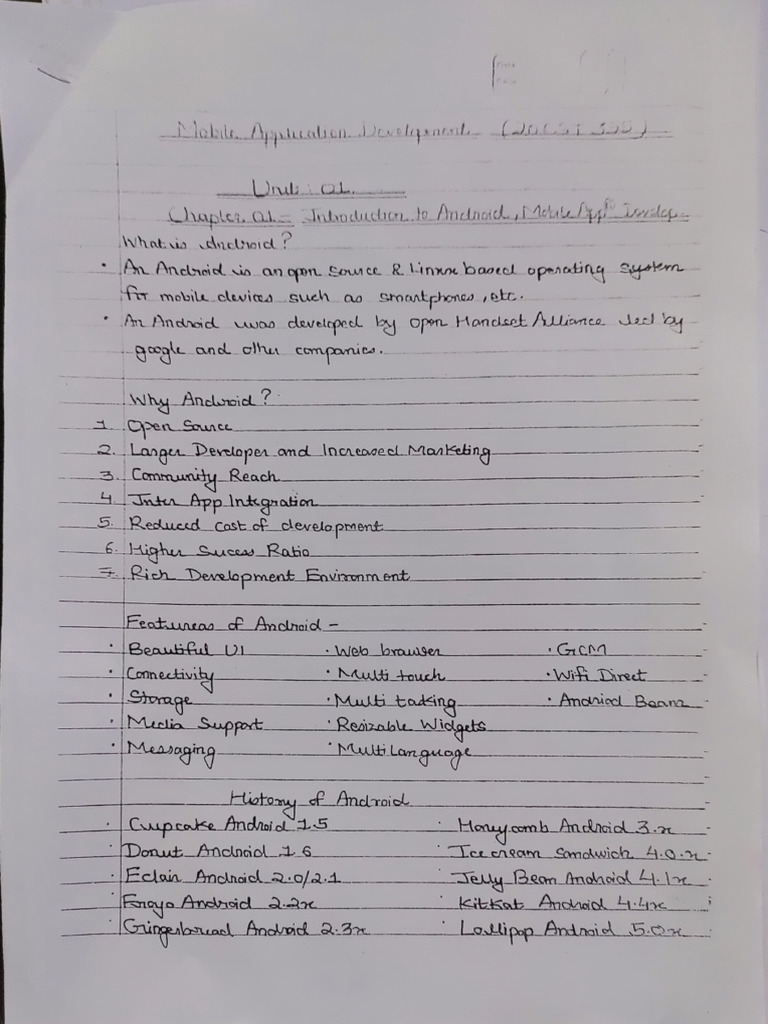 Mobile Application Development
Unit: 01.
Chapter 01 - Introduction to Android, Mobile Appn Develop
What is Android?
• An Android is an opn source & Linux based operating system
for mobile devices such as smartphones, etc.
• An Android was developed by open Handset Alliance led by
google and other companies.
Why Android?
1. Open Source
2. Larger Developer and Increased Marketing
3. Community Reach
4. Inter App Integration
5. Reduced cost of development
6. Higher Sucess Ratio
7. Rich Development Environment
Featureas of Android -
• Beautiful UI • Web brawser • GCM
• Connectivity • Multi touch • Wifi Direct
• Storage • Multi tasking • Andriod Beam
• Media Support • Resizable Widgets
• Messaging • MultiLanguage
History of Android
• Cupcake Android 1.5 • Honeycomb Android 3.x
• Donut Android 1.6 • Ice cream Sandwich 4.0.x
• Eclair Android 2.0/2.1 • Jelly Bean Android 4.1x
• Froyo Android 2.2x • KitKat Android 4.4x
• Gingerbread Android 2.3x • Lollipop Android 5.0x